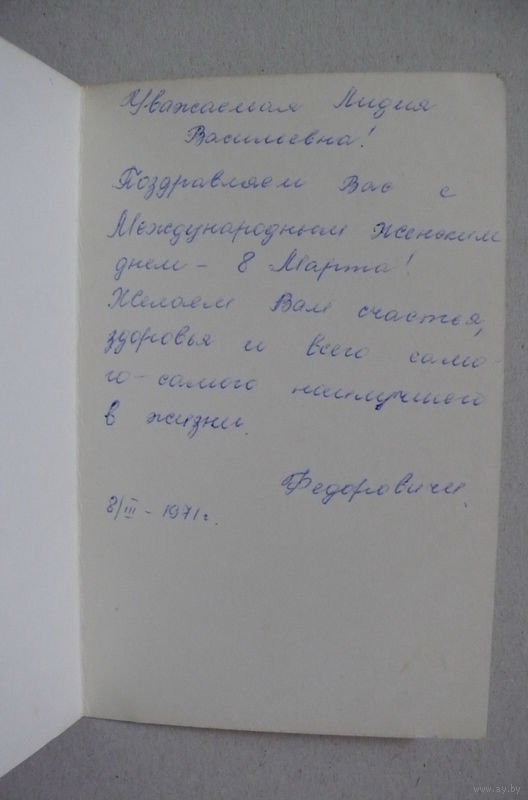 Уважаемая Лидия
Васильевна!
Поздравляем Вас с
Международным женским
днем - 8 Марта!
Желаем Вам счастья,
здоровья и всего само-
го-самого наилучшего
в жизни.
Федоровичи.
8/III - 1971 г.
www.ay.by